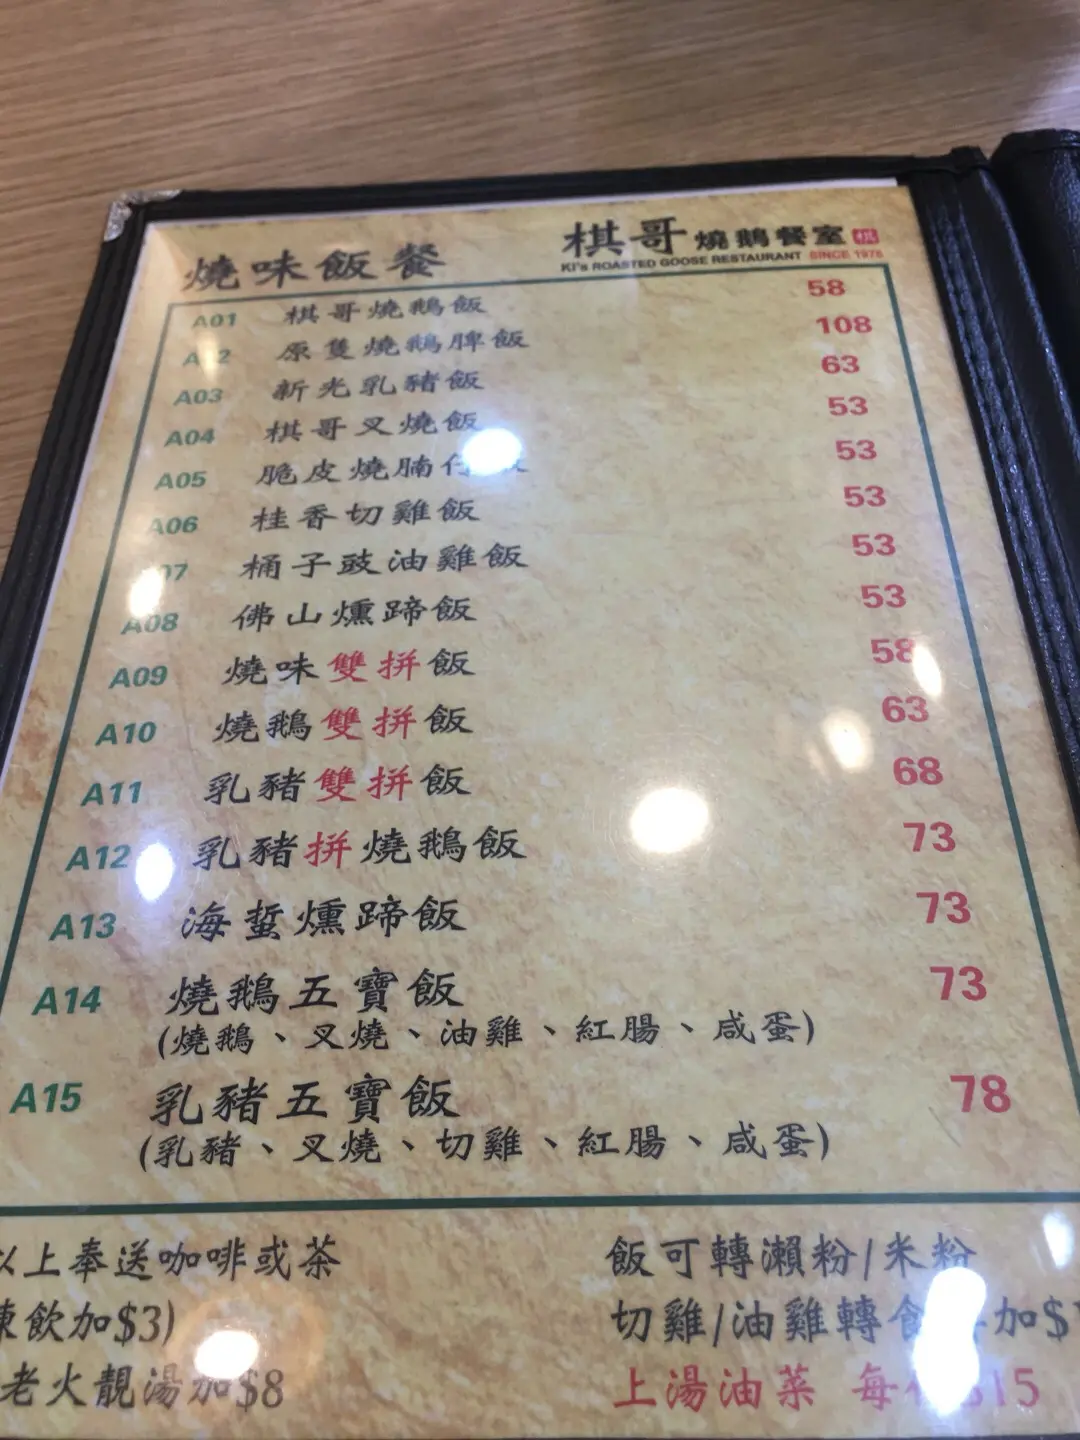 燒味飯餐
棋哥燒鵝餐室 棋
KI's ROASTED GOOSE RESTAURANT SINCE 1978
A01 棋哥燒鵝飯 58
A 2 原隻燒鵝脾飯 108
A03 新光乳豬飯 63
A04 棋哥叉燒飯 53
A05 脆皮燒腩仔 53
A06 桂香切雞飯 53
07 桶子豉油雞飯 53
A08 佛山燻蹄飯 53
A09 燒味雙拼飯 58
A10 燒鵝雙拼飯 63
A11 乳豬雙拼飯 68
A12 乳豬拼燒鵝飯 73
A13 海蜇燻蹄飯 73
A14 燒鵝五寶飯 73
(燒鵝、叉燒、油雞、紅腸、咸蛋)
A15 乳豬五寶飯 78
(乳豬、叉燒、切雞、紅腸、咸蛋)
以上奉送咖啡或茶
凍飲加$3)
老火靚湯加$8
飯可轉瀨粉/米粉
切雞/油雞轉 加$
上湯油菜 每 $15